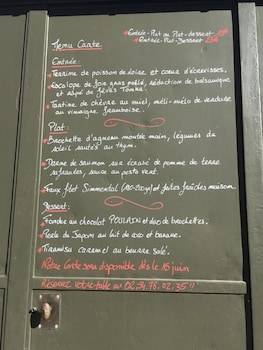 Entrée-Plat ou Plat-dessert
Entrée-Plat-Dessert
Menu Carte
Entrée:
Terrine de poisson de loire et coeur d'écrevisses.
Escalope de foie gras poêlé, réduction de balsamique
et râpé de fèves Tonka.
Tartine de chèvre au miel, méli-melo de verdure
au vinaigre framboise.
Plat:
Brochette d'agneau montée main, légumes du
soleil sautés au thym.
Darne de saumon sur écrasé de pomme de terre
safranées, sauce au pesto vert.
Faux filet Simmental et frites fraîches maison.
Dessert:
Fondue au chocolat POULAIN et duo de brochettes.
Perle du Japon au lait de coco et banane.
Tiramisu caramel au beurre salé.
Notre Carte sera disponible dès le 15 juin
Réservez votre table au 02.54.78.02.35!!